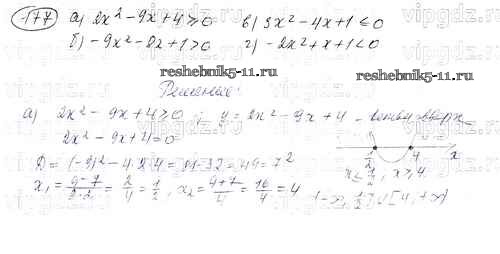 177 а) 2x² - 9x + 4 ≥ 0 в) 3x² - 4x + 1 ≤ 0
б) -9x² - 8x + 1 > 0 г) -2x² + x + 1 < 0
reshebnik5-11.ru reshebnik5-11.ru
Решение:
а) 2x² - 9x + 4 ≥ 0 ; y = 2x² - 9x + 4 - ветви вверх
2x² - 9x + 4 = 0
D = (-9)² - 4·2·4 = 81 - 32 = 49 = 7²
1/2 4 x
x₁ = (9-7)/(2·2) = 2/4 = 1/2 , x₂ = (9+7)/4 = 16/4 = 4
x ≤ 1/2 , x ≥ 4
(-∞, 1/2] ∪ [4, +∞)